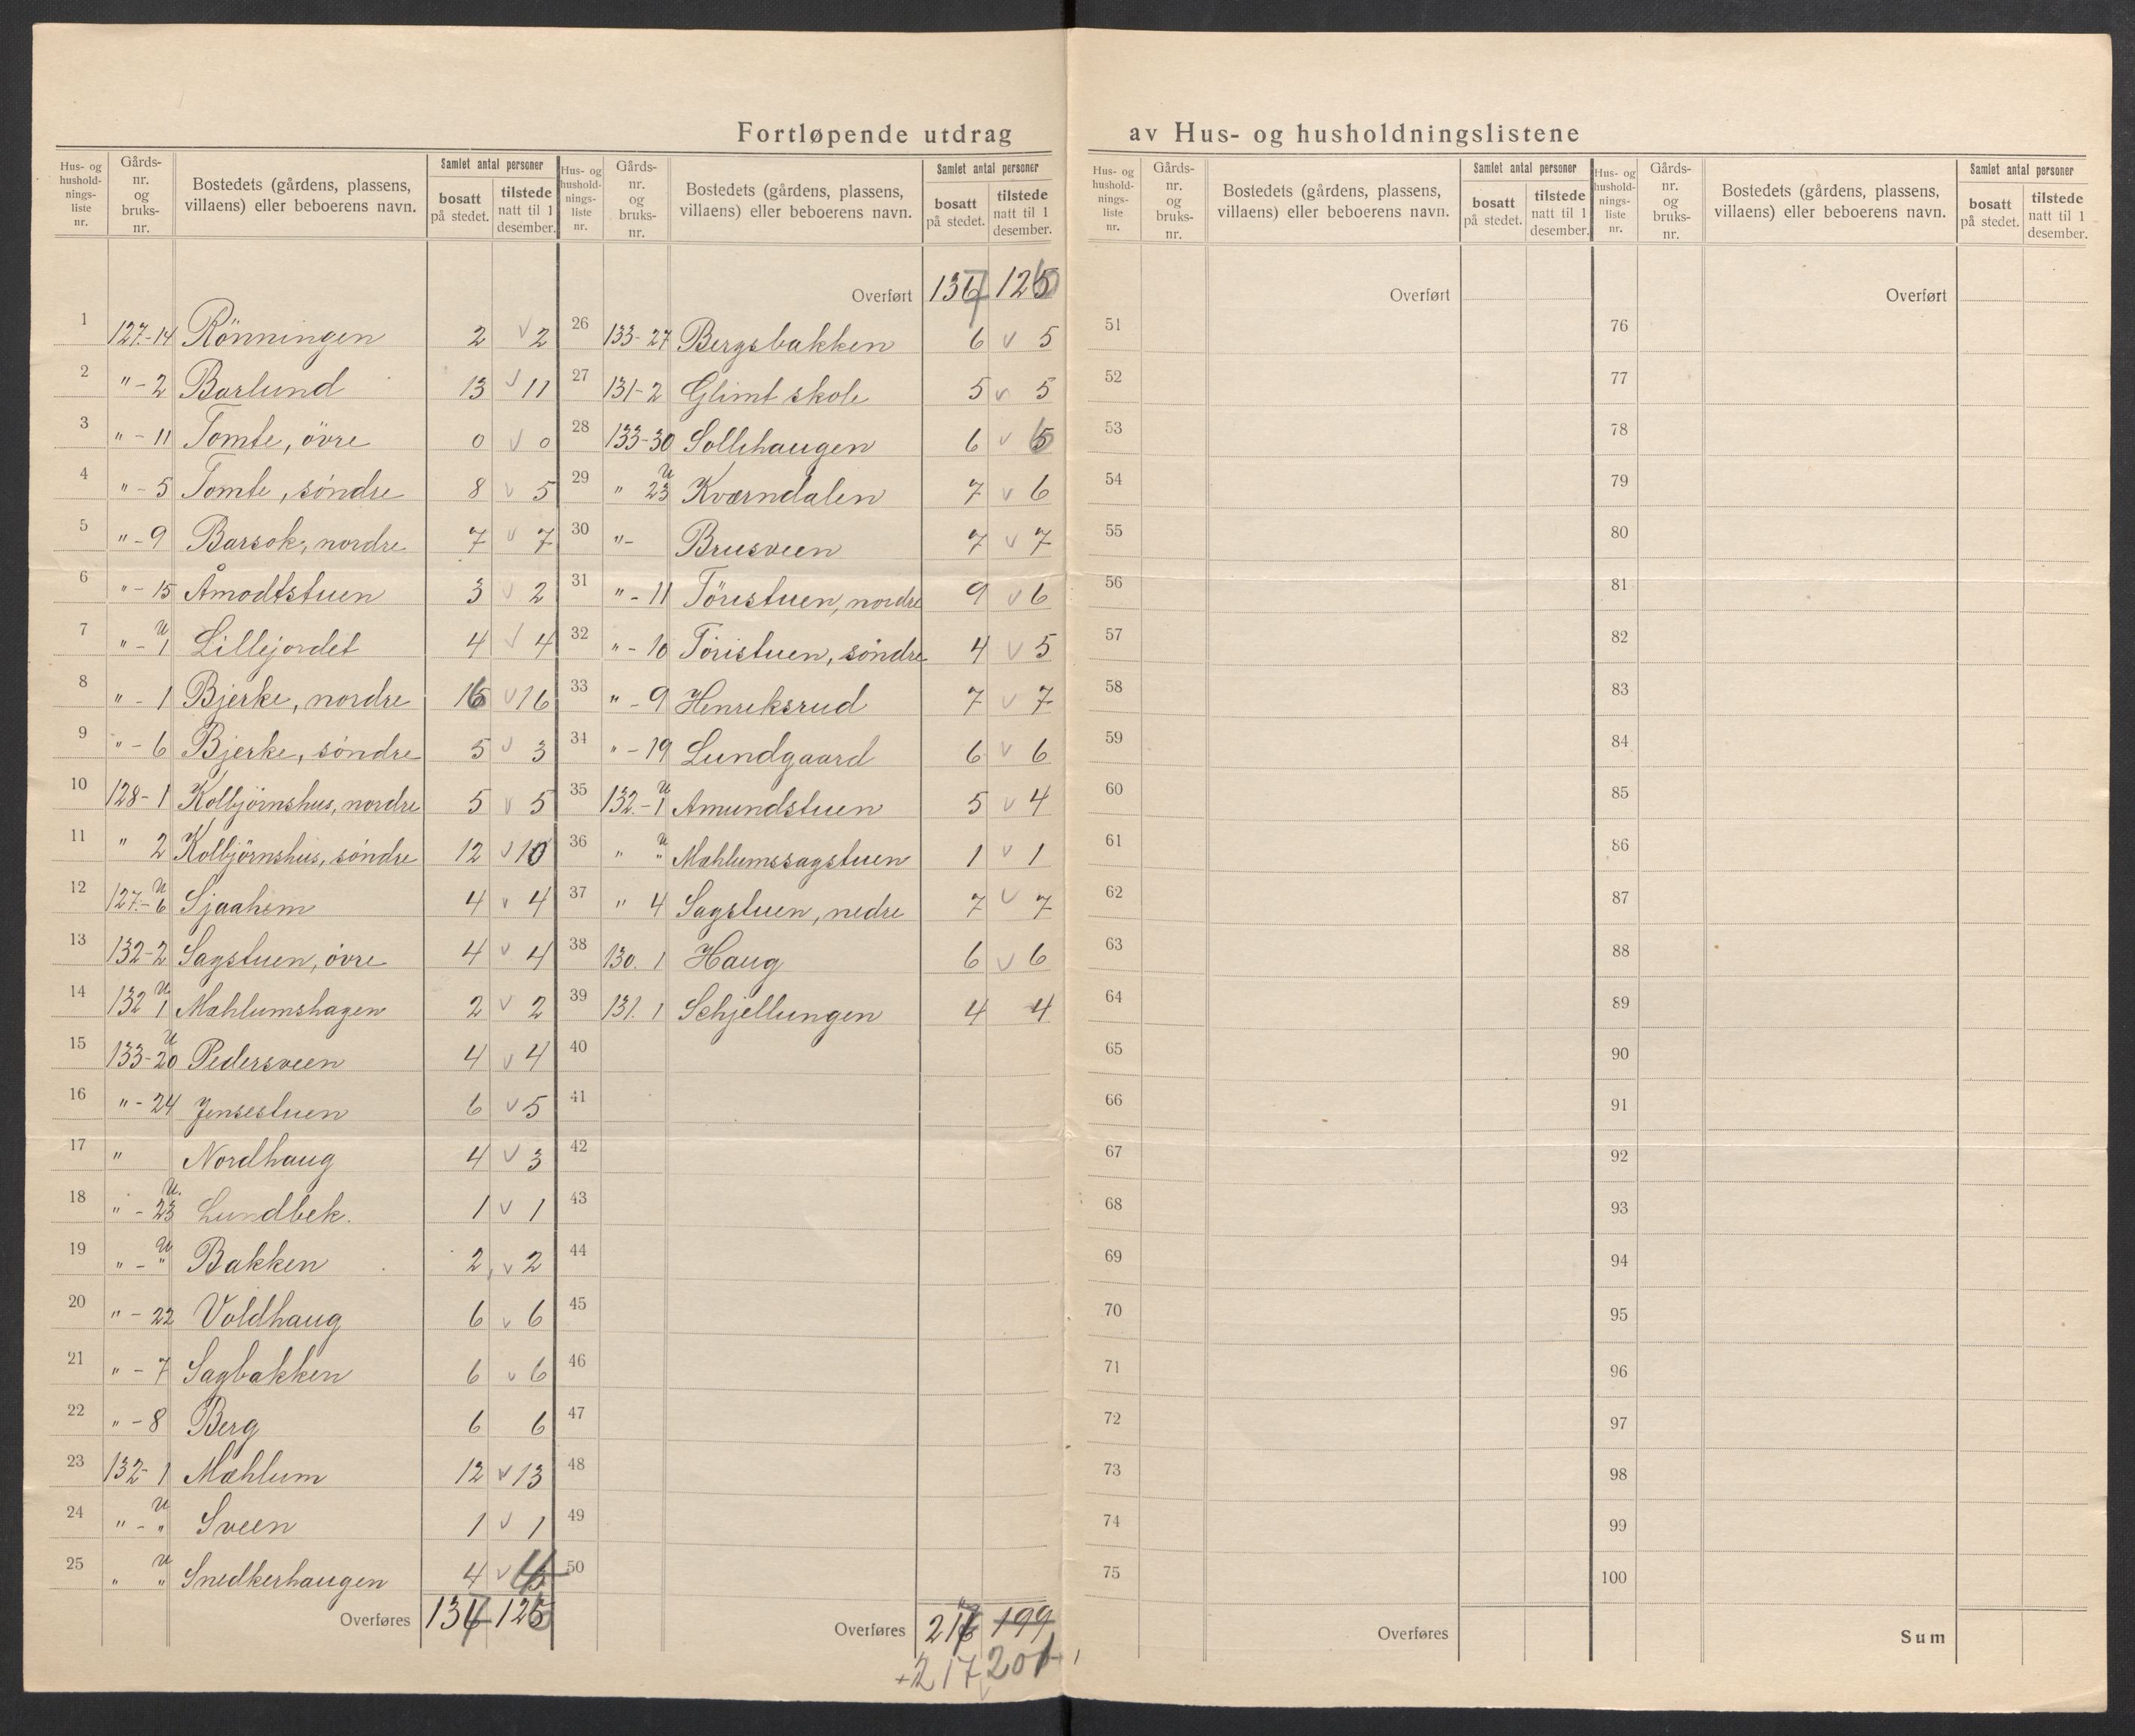 Fortløpende utdrag av Hus- og husholdningslistene
Hus- og husholdningsliste nr. | Gårds-nr. og bruks-nr. | Bostedets (gårdens, plassens, villaens) eller beboerens navn. | Samlet antal personer | bosatt på stedet. | tilstede natt til 1 desember.
1 127.-14 Rönningen 2 v 2
2 " - 2 Barlund 13 v 11
3 " - 11 Tomte, övre 0 v 0
4 " - 5 Tomte, söndre 8 v 5
5 " - 9 Barsok, nordre 7 v 7
6 " - 15 Åmodtstuen 3 v 2
7 " - U 1 Lillejordet 4 v 4
8 " - 1 Bjerke, nordre 16 v 16
9 " - 6 Bjerke, söndre 5 v 3
10 128-1 Kolbjörnshus, nordre 5 v 5
11 " 2 Kolbjörnshus, söndre 12 v 10
12 127.- U 6 Sjaahem 4 v 4
13 132-2 Sagstuen, övre 4 v 4
14 132 U 1 Mæhlumshagen 2 v 2
15 133- U 20 Pedersveen 4 v 4
16 " - 24 Jensestuen 6 v 5
17 " Nordhaug 4 v 3
18 " - U. 23 Lundbek. 1 v 1
19 " - U " Bakken 2 v 2
20 " - 22 Voldhaug 6 v 6
21 " - 7 Sagbakken 6 v 6
22 " - 8 Berg 6 6
23 132-1 Mæhlum 12 v 13
24 " - U " Sveen 1 v 1
25 " U " Snedkerhaugen 4 v 4
Overføres 137 126
Hus- og husholdningsliste nr. | Gårds-nr. og bruks-nr. | Bostedets (gårdens, plassens, villaens) eller beboerens navn. | Samlet antal personer | bosatt på stedet. | tilstede natt til 1 desember.
Overført 137 126
26 133-27 Bergsbakken 6 v 5
27 131-2 Glimt skole 5 v 5
28 133-30 Sollihaugen 6 v 6
29 " U 23 Kværndalen 7 v 6
30 " - Brusveen 7 v 7
31 " - 11 Töristuen, nordre 9 v 6
32 " - 10 Töristuen, söndre 4 v 5
33 " - 9 Henriksrud 7 v 7
34 " - 19 Lundgaard 6 v 6
35 132.- U 1 Amundstuen 5 v 4
36 " U " Mæhlumssagstuen 1 v 1
37 " 4 Sagstuen, nedre 7 v 7
38 130. 1 Haug 6 v 6
39 131. 1 Schjellungen 4 4
40
41
42
43
44
45
46
47
48
49
50
Overføres 199
+217 201
Hus- og husholdningsliste nr. | Gårds-nr. og bruks-nr. | Bostedets (gårdens, plassens, villaens) eller beboerens navn. | Samlet antal personer | bosatt på stedet. | tilstede natt til 1 desember.
Overført
51
52
53
54
55
56
57
58
59
60
61
62
63
64
65
66
67
68
69
70
71
72
73
74
75
Overføres
Hus- og husholdningsliste nr. | Gårds-nr. og bruks-nr. | Bostedets (gårdens, plassens, villaens) eller beboerens navn. | Samlet antal personer | bosatt på stedet. | tilstede natt til 1 desember.
Overført
76
77
78
79
80
81
82
83
84
85
86
87
88
89
90
91
92
93
94
95
96
97
98
99
100
Sum